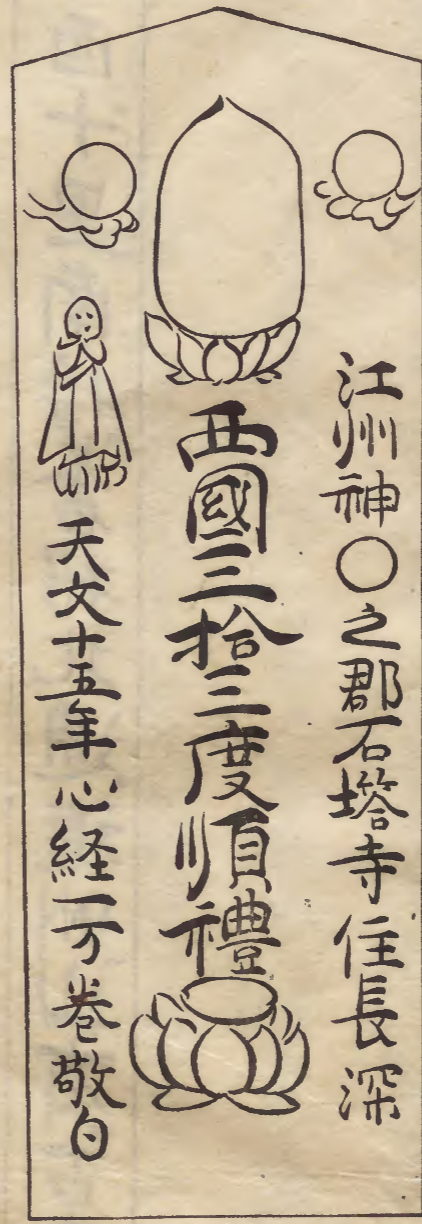 江州神〇之郡石塔寺住長深
西國三拾三度順禮
天文十五年心経一万巻敬白